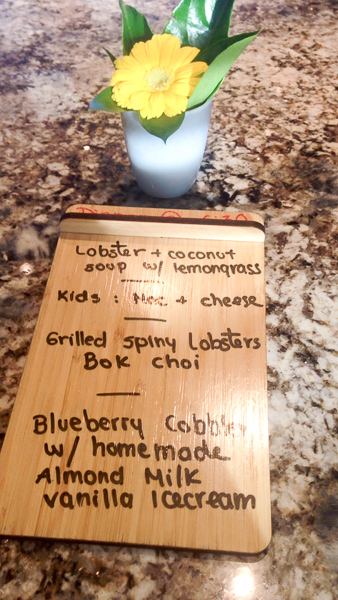 Dinner @ 6:30
Lobster + coconut
soup w/ lemongrass
Kids : Mac + cheese
Grilled spiny Lobsters
Bok choi
Blueberry Cobbler
w/ homemade
Almond Milk
vanilla Icecream